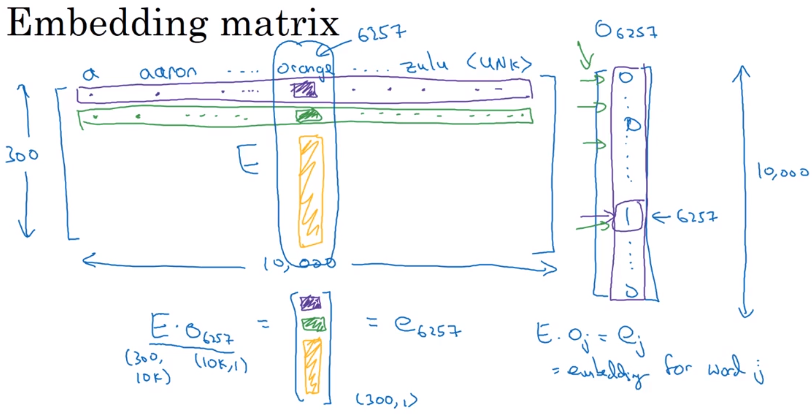 Embedding matrix
6257
O6257
a aaron ..... orange ..... zulu <UNK>
300
E
0
0
10,000
1 ← 6257
0
10,000
E · o6257 = [ ] = e6257
(300, 10K) (10K, 1)
(300, 1)
E · oj = ej
= embedding for word j